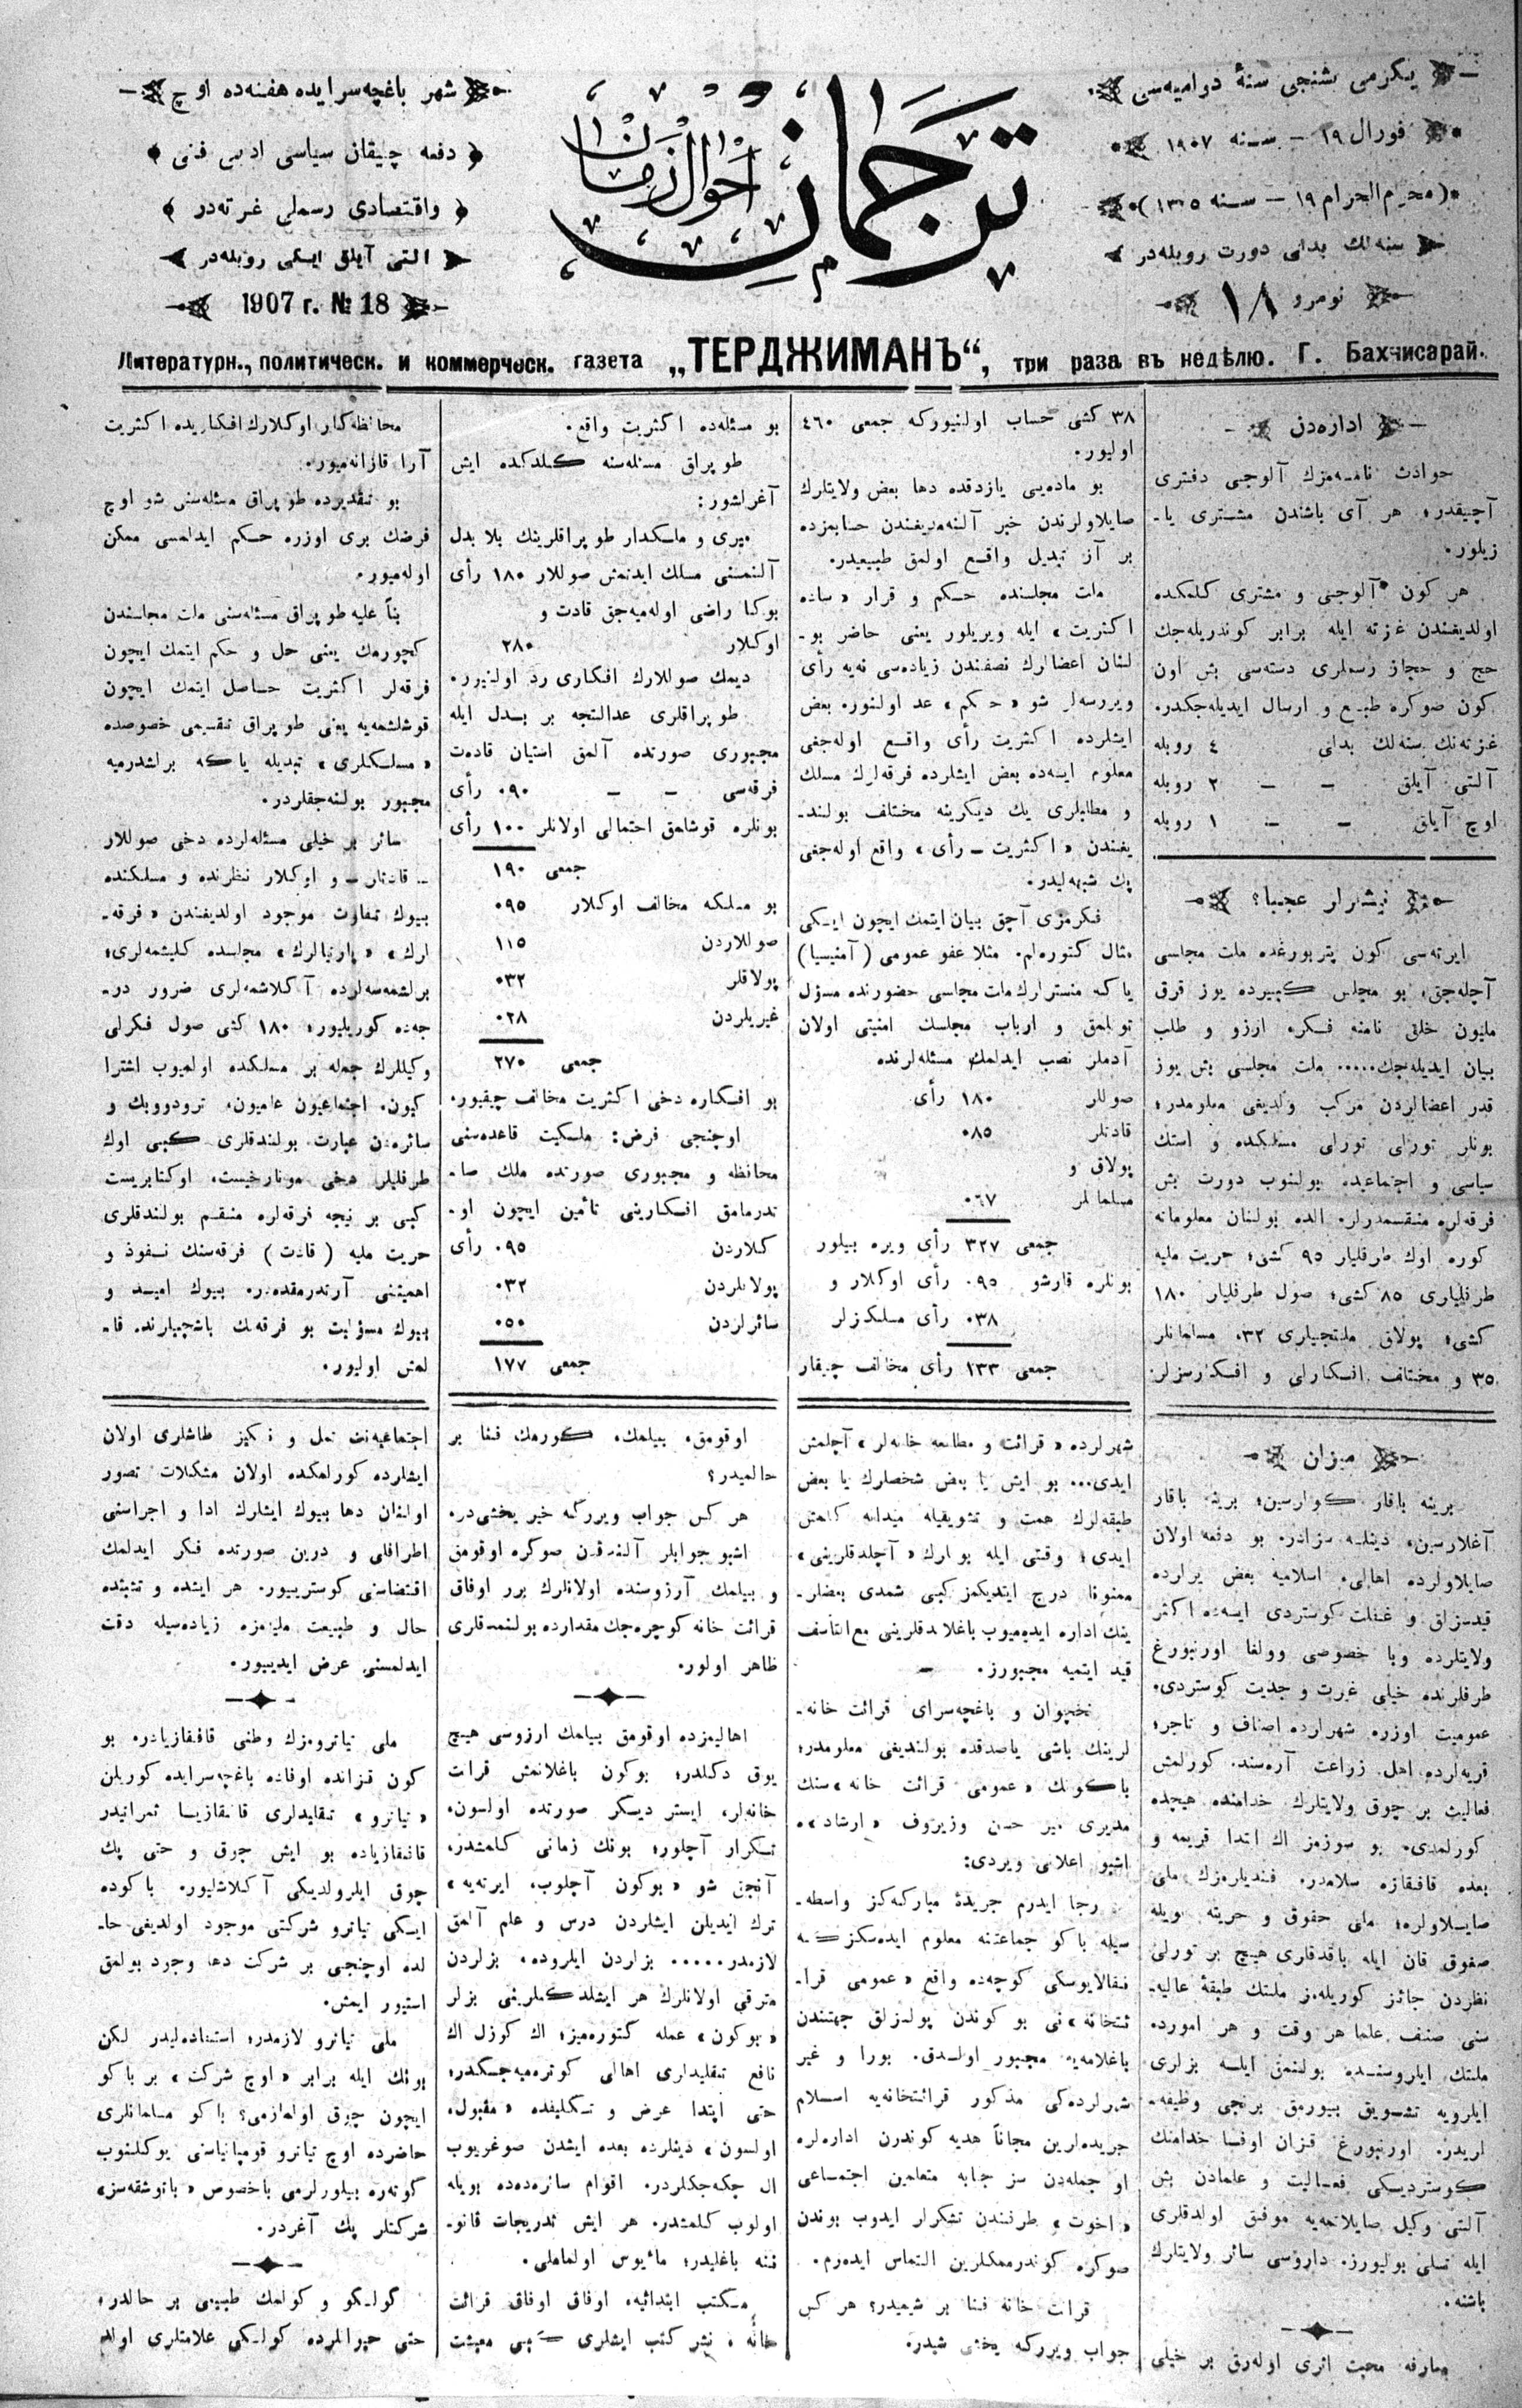 يكرمى بشنجى سنهٔ دواميه‌سى
فورال ١٩ — سنه ١٩٠٧
(محرم الحرام ١٩ — سنه ١٣٢٥)
سنه‌لك بدلى دورت روبله‌در
نومرو ١٨
ترجمان
احوال زمان
شهر باغچه‌سرايده هفته‌ده اوچ
دفعه چيقان سياسى ادبى فنى
واقتصادى رسملى غزته‌در
التى آيلق ايكى روبله‌در
1907 г. № 18
Литературн., политическ. и коммерческ. газета „ТЕРДЖИМАНЪ“, три раза въ недѣлю. Г. Бахчисарай.
اداره‌دن
حوادث نامه‌مزك آلوجى دفترى
آچيقدر؛ هر آى باشندن مشترى يا-
زيلور.
هر كون آلوجى و مشترى كلمكده
اولديغندن غزته ايله برابر كوندريله‌جك
حج و حجاز رسملرى دسته‌سى بش اون
كون صوكره طبع و ارسال ايديله‌جكدر.
غزته‌نك سنه‌لك بدلى ٤ روبله
آلتى آيلق — — ٢ روبله
اوچ آيلق — — ١ روبله
نيشرلر عجبا؟
ايرته‌سى كون پتربورغده ملت مجلسى
آچله‌جق؛ بو مجلس كبيرده يوز قرق
مليون خلق نامنه فكر، ارزو و طلب
بيان ايديله‌جك..... ملت مجلسى بش يوز
قدر اعضالردن مركب ولديغى معلومدر؛
بونلر تورلى تورلى مسلكده و استك
سياسى و اجتماعيده بولنوب دورت بش
فرقه‌لره منقسمدرلر. الده بولنان معلوماته
كوره اوك طرفليلر ٩٥ كشى؛ حريت مليه
طرفليلرى ٨٥ كشى؛ صول طرفليلر ١٨٠
كشى؛ پولاق ملتجيلرى ٣٢، مسلمانلر
٣٥ و مختلف افكارلى و افكارسزلر
٣٨ كشى حساب اولنيوركه جمعى ٤٦٠
اوليور.
بو ماده‌يى يازدقده دها بعض ولايتلرك
صايلاولرندن خبر آلنه‌مديغندن حسابمزده
بر آز تبديل واقع اولمق طبيعيدر.
ملت مجلسنده حكم و قرار «ساده
اكثريت» ايله ويريلور يعنى حاضر بو-
لنان اعضالرك نصفندن زياده‌سى نه‌يه رأى
ويررسه‌لر شو «حكم» عد اولنور. بعض
ايشلرده اكثريت رأى واقع اوله‌جغى
معلوم ايسه‌ده بعض ايشلرده فرقه‌لرك مسلك
و مطالبلرى يك ديكرينه مختلف بولند-
يغندن «اكثريت — رأى» واقع اوله‌جغى
پك شبهه‌ليدر.
فكرمزى آچق بيان ايتمك ايچون ايكى
مثال كتوره‌لم. مثلا عفو عمومى (آمنيسيا)
ياكه منسترلرك ملت مجلسى حضورنده مسؤل
تولمق و ارباب مجلسك امنيتى اولان
آدملر نصب ايدلمك مسئله‌لرنده
صوللر ١٨٠ رأى
قادتلر ٠٨٥
پولاق و
مسلمانلر ٠٦٧
جمعى ٣٢٧ رأى ويره بيلور
بونلره قارشو ٠٩٥ رأى اوكلار و
٠٣٨ رأى مسلكزلر
جمعى ١٣٣ رأى مخالف چيقار
بو مسئله‌ده اكثريت واقع.
طوپراق مسئله‌سنه كلدكده ايش
آغرلشور:
ميرى و ملكدار طوپراقلرينك بلا بدل
آلنمسنى مسلك ايدنمش صوللار ١٨٠ رأى
بوكا راضى اوله‌ميه‌جق قادت و
اوكلار ٢٨٠
ديمك صوللارك افكارى رد اولنيور.
طوپراقلرى عدالتجه بر بدل ايله
مجبورى صورتده آلمق استيان قادت
فرقه‌سى — — ٠٩٠ رأى
بونلره قوشلمق احتمالى اولانلر ١٠٠ رأى
جمعى ١٩٠
بو مسلكه مخالف اوكلار ٠٩٥
صوللاردن ١١٥
پولاقلر ٠٣٢
غيريلردن ٠٢٨
جمعى ٢٧٠
بو افكاره دخى اكثريت مخالف چيقيور.
اوچنجى فرض: ملكيت قاعده‌سنى
محافظه و مجبورى صورتده ملك صا-
تدرمامق افكارينى تأمين ايچون او-
كلاردن ٠٩٥ رأى
پولاقلردن ٠٣٢
سائرلردن ٠٥٠
جمعى ١٧٧
محافظه‌كار اوكلارك افكاريده اكثريت
آرا قازانه‌ميور.
بو تقديرده طوپراق مسئله‌سنى شو اوچ
فرضك برى اوزره حكم ايدلمسى ممكن
اوله‌ميور.
بناً عليه طوپراق مسئله‌سنى ملت مجلسندن
كچورمك يعنى حل و حكم ايتمك ايچون
فرقه‌لر اكثريت حاصل ايتمك ايچون
قوشلشمه‌يه يعنى طوپراق تقسيمى خصوصده
«مسلكلرى» تبديله ياكه برلشدرميه
مجبور بولنه‌جقلردر.
سائر بر خيلى مسئله‌لرده دخى صوللار
— قادتلر — و اوكلار نظرنده و مسلكنده
بيوك تفاوت موجود اولديغندن «فرقه-
لرك» «پارتيالرك» مجلسده كليشمه‌لرى؛
برلشمه‌سه‌لرده آكلاشمه‌لرى ضرور در-
جه‌ده كوريليور؛ ١٨٠ كشى صول فكرلى
وكيللرك جمله بر مسلكده اولميوب اشترا
كيون، اجتماعيون عاميون، ترودوويك و
سائره‌دن عبارت بولندقلرى كبى اوك
طرفليلر دخى مونارخيست، اوكتابريست
كبى بر نيچه فرقه‌لره منقسم بولندقلرى
حريت مليه (قادت) فرقه‌سنك نفوذ و
اهميتنى آرتدرمقده‌در. بيوك اميد و
بيوك مسؤليت بو فرقه‌نك باشچيلرنده قا-
لمش اوليور.
ميزان
برينه باقار كولرسين؛ برينه باقار
آغلارسين، دينلسه سزادر. بو دفعه اولان
صايلاولرده اهالىء اسلاميه بعض يرلرده
قيدسزلق و غفلت كوستردى ايسه‌ده اكثر
ولايتلرده وبا خصوصى وولغا اورنبورغ
طرفلرنده خيلى غيرت و جديت كوستردى.
عموميت اوزره شهرلرده اصناف و تاجر؛
قريه‌لرده اهل زراعت آره‌سنده كورلمش
فعاليت بر چوق ولايتلرك خدامنده هيچده
كورلمدى. بو سوزمز اك ابتدا قريمه و
بعده قافقازه سلامدر. افنديلرمزك ملى
صايلاولره؛ ملى حقوق و حريته بويله
صغوق قان ايله باقدقلرى هيچ بر تورلى
نظردن جائز كوريله‌مز ملتك طبقهٔ عاليه-
سى صنف علما هر وقت و هر امورده
ملتك ايلروسنده بولنمق ايله بزلرى
ايلرويه تشويق بيورمق برنجى وظيفه-
لريدر. اورنبورغ قزان اوفا خدامنك
كوسترديكى فعاليت و علمادن بش
آلتى وكيل صايلاتمه‌يه موفق اولدقلرى
ايله تسلى بوليورز. داروسى سائر ولايتلرك
باشنه.
معارفه محبت اثرى اوله‌رق بر خيلى
شهرلرده «قرائت و مطالعه خانه‌لر» آچلمش
ايدى... بو ايش يا بعض شخصلرك يا بعض
طبقه‌لرك همت و تشويقيله ميدانه كلمش
ايدى؛ وقتى ايله بونلرك «آچلدقلرينى»
ممنونا درج ايتديكمز كبى شمدى بعضلر-
ينك اداره ايديميوب باغلاندقلرينى مع التأسف
قيد ايتميه مجبورز.
نخچوان و باغچه‌سراى قرائت خانه-
لرينك باشى ياصدقده بولنديغى معلومدر؛
باكونك «عمومى قرائت خانه»سنك
مديرى مير حسن وزيروف «ارشاد»ه
اشبو اعلانى ويردى:
رجا ايدرم جريدهٔ مباركه‌كز واسطه-
سيله باكو جماعتنه معلوم ايده‌سكز كه
نيقالايوسكى كوچه‌ده واقع «عمومى قرا-
ئتخانه»نى بو كوندن پولسزلق جهتندن
باغلامه‌يه مجبور اولدق. بورا و غير
شهرلرده‌كى مذكور قرائتخانه‌يه اسلام
جريده‌لرين مجاناً هديه كوندرن اداره‌لره
او جمله‌دن سز جنابه متعلمين اجتماعى
«اخوت» طرفندن تشكرلر ايدوب بوندن
صوكره كوندرممكلرين التماس ايده‌رم.
قرائت خانه فنا بر شيميدر؟ هر كس
جواب ويرركه يخشى شيدر.
اوقومق، بيلمك، كورمك فنا بر
حالميدر؟
هر كس جواب ويرركه خير يخشى‌در.
اشبو جوابلر آلندقدن صوكره اوقومق
و بيلمك آرزوسنده اولانلرك برر اوفاق
قرائت خانه كوچره‌جك مقدارده بولنمدقلرى
ظاهر اولور.
اهاليمزده اوقومق بيلمك ارزوسى هيچ
يوق دكلدر؛ بوكون باغلانمش قرائت
خانه‌لر، ايستر ديكر صورتده اولسون،
تكرار آچلور؛ بونك زمانى كلمشدر،
آنجق شو «بوكون آچلوب، ايرته‌يه»
ترك ايديلن ايشلردن درس و علم آلمق
لازمدر..... بزلردن ايلروده، بزلردن
مترقى اولانلرك هر ايشلدكلرينى بزلر
«بوكون» عمله كتوره‌ميز؛ اك كوزل اك
نافع تقليدلرى اهالى كوتره‌ميه‌جكدر؛
حتى ابتدا عرض و تكليفده «مقبول،
اولسون» دينلرده بعده ايشدن صوغريوب
ال چكه‌جكلردر. اقوام سائره‌ده‌ده بويله
اولوب كلمشدر. هر ايش تدريجات قانو-
ننه باغليدر؛ مأيوس اولماملى.
مكتب ابتدائيه، اوفاق اوفاق قرائت
خانه، نشر كتب ايشلرى كبى معيشت
اجتماعيه‌نك تمل و نكيز طاشلرى اولان
ايشلرده كورلمكده اولان مشكلات تصور
اولنان دها بيوك ايشلرك ادا و اجراسنى
اطرافلى و درين صورتده فكر ايدلمك
اقتضاسنى كوستريبور. هر ايشده و تشبثده
حال و طبيعت مليه‌مزه زياده‌سيله دقت
ايدلمسنى عرض ايدييور.
ملى تياترومزك وطنى قافقازيادر، بو
كون قزانده اوفاده باغچه‌سرايده كوريلن
«تياترو» تقليدلرى قافقازيا ثمراتيدر
قافقازياده بو ايش چوق و حتى پك
چوق ايلرولديكى آكلاشليور. باكوده
ايكى تياترو شركتى موجود اولديغى حا-
لده اوچنجى بر شركت دها وجود بولمق
استيور ايمش.
ملى تياترو لازمدر؛ استفاده‌ليدر لكن
بونك ايله برابر «اوچ شركت» بر باكو
ايچون چوق اولمازمى؟ باكو مسلمانلرى
حاضرده اوچ تياترو قومپانياسنى يوكلنوب
كوتره بيلورلرمى باخصوص «باتوشقه‌سز»
شركتلر پك آغردر.
كولكو و كولمك طبيعى بر حالدر،
حتى حيوانلرده كولكى علامتلرى اولد